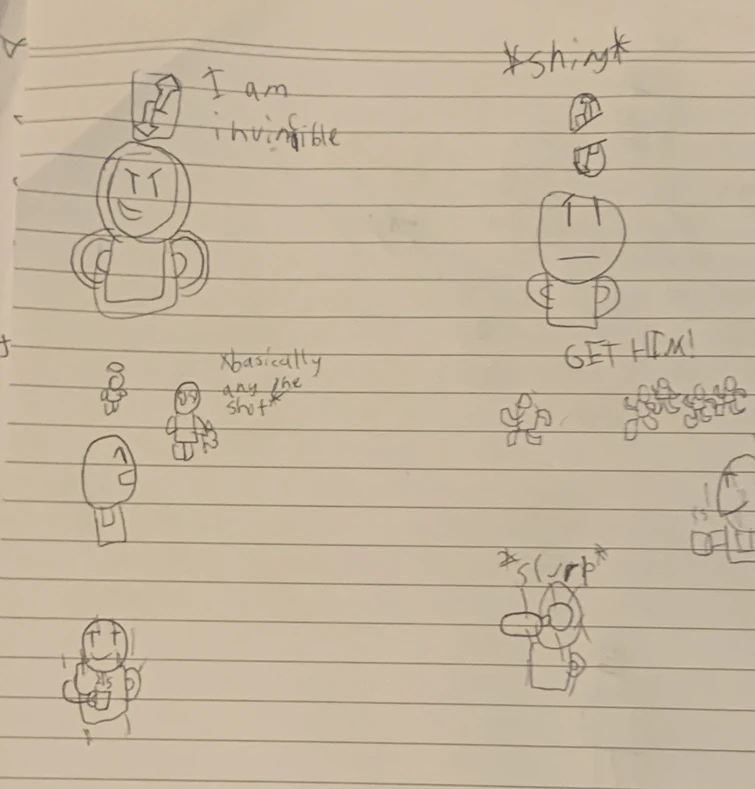 I am
invincible
*shing*
*basically
any one
shot*
GET HIM!
*slurp*